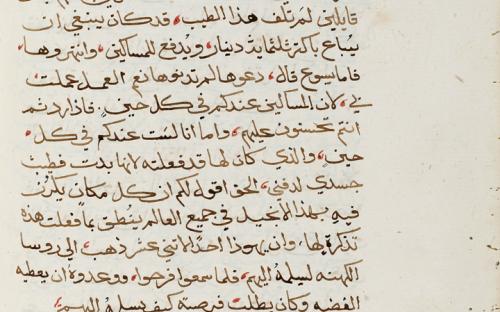 قايلين لم تلف هذا الطيب، قد كان ينبغي ان
يباع باكثر ثلثماية دينار ويدفع للمساكين، وانتهروها،
فاما يسوع قال، دعوها لم تدنوها نعم العمل عملت
بي، لان المساكين عندكم في كل حين، فاذا اردتم
انتم تحسنون عليهم، واما انا لست عندكم في كل
حين، والذي كان لها قد فعلته لانها بدت فطيبت
جسدي لدفني، الحق اقول لكم ان كل مكان يكرز
فيه بهذا الانجيل في جميع العالم ينطق بما فعلت هذه
تذكرة لها، وان يهوذا احد الاثني عشر ذهب الى روسا
الكهنه ليسلمه اليهم، فلما سمعوا فرحوا، ووعدوه ان يعطيه
الفضه وكان يطلب فرصة كيف يسلمه اليهم،